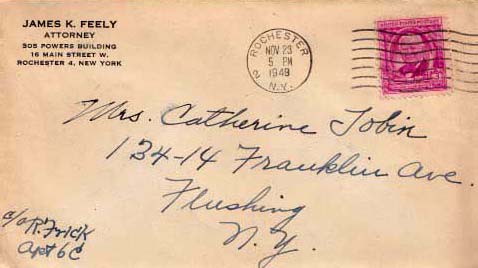 JAMES K. FEELY
ATTORNEY
505 POWERS BUILDING
16 MAIN STREET W.
ROCHESTER 4, NEW YORK
ROCHESTER 2
NOV 23
5 PM
1948
N.Y.
UNITED STATES POSTAGE
Mrs. Catherine Tobin
134-14 Franklin Ave.
Flushing
N.Y.
c/o R. Frick
Apt 6C